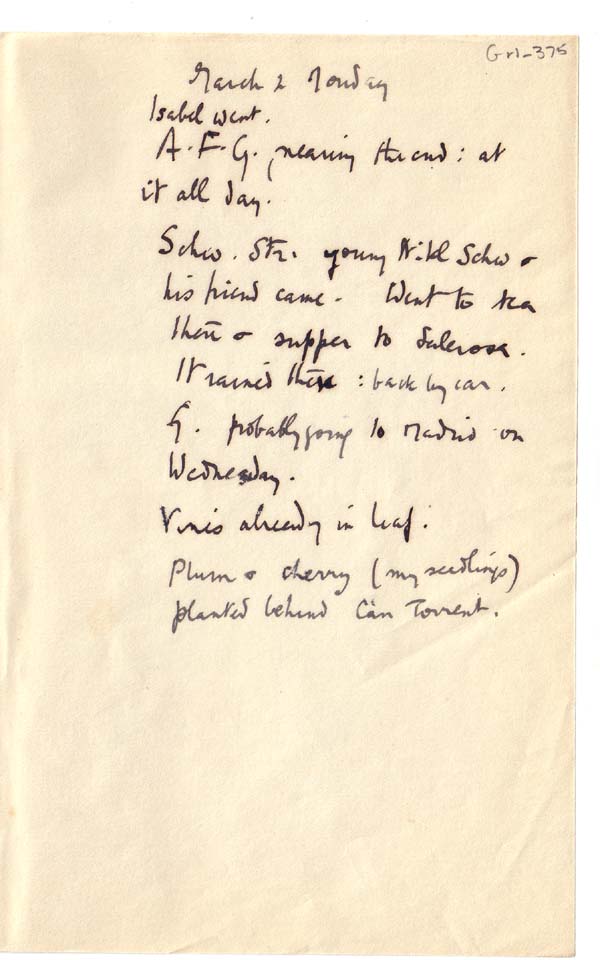 Gri-375
March 2 Monday
Isabel went.
A.F.G. nearing the end: at
it all day.
Schw. Str. young Schw &
his friend came. Went to tea
there & supper to Salerosa.
It rained there: back by car.
G. probably going to Madrid on
Wednesday.
Vines already in leaf.
Plum & cherry (my seedlings)
planted behind Can Torrent.